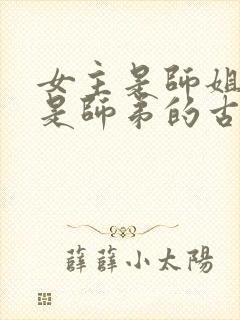 女主是師姐
是師弟的古
薛薛小太陽